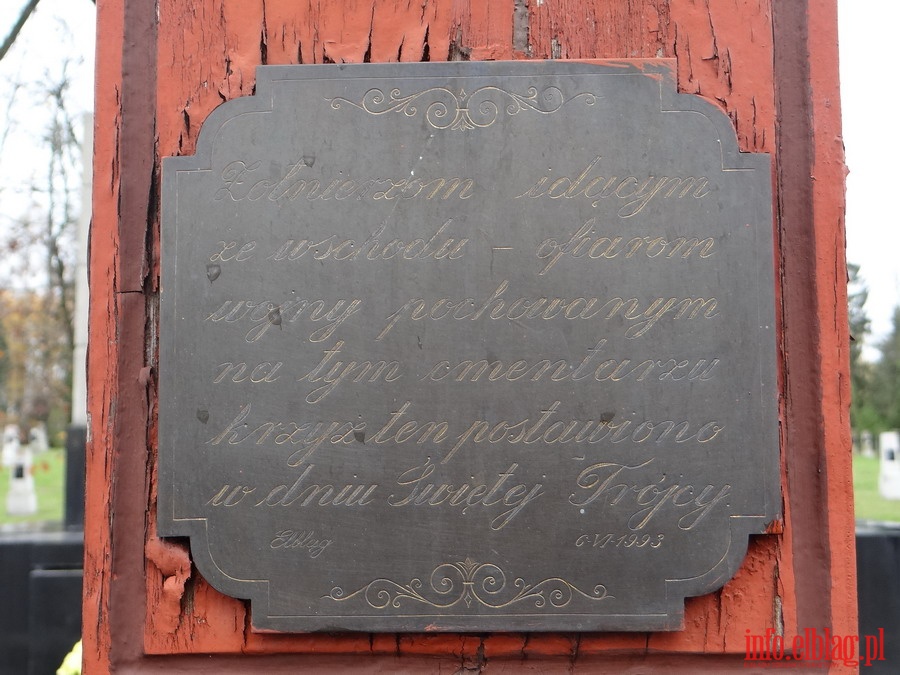 Żołnierzom idącym
ze wschodu – ofiarom
wojny pochowanym
na tym cmentarzu
krzyż ten postawiono
w dniu Świętej Trójcy.
Elbląg 6.VI.1993
info.elblag.pl